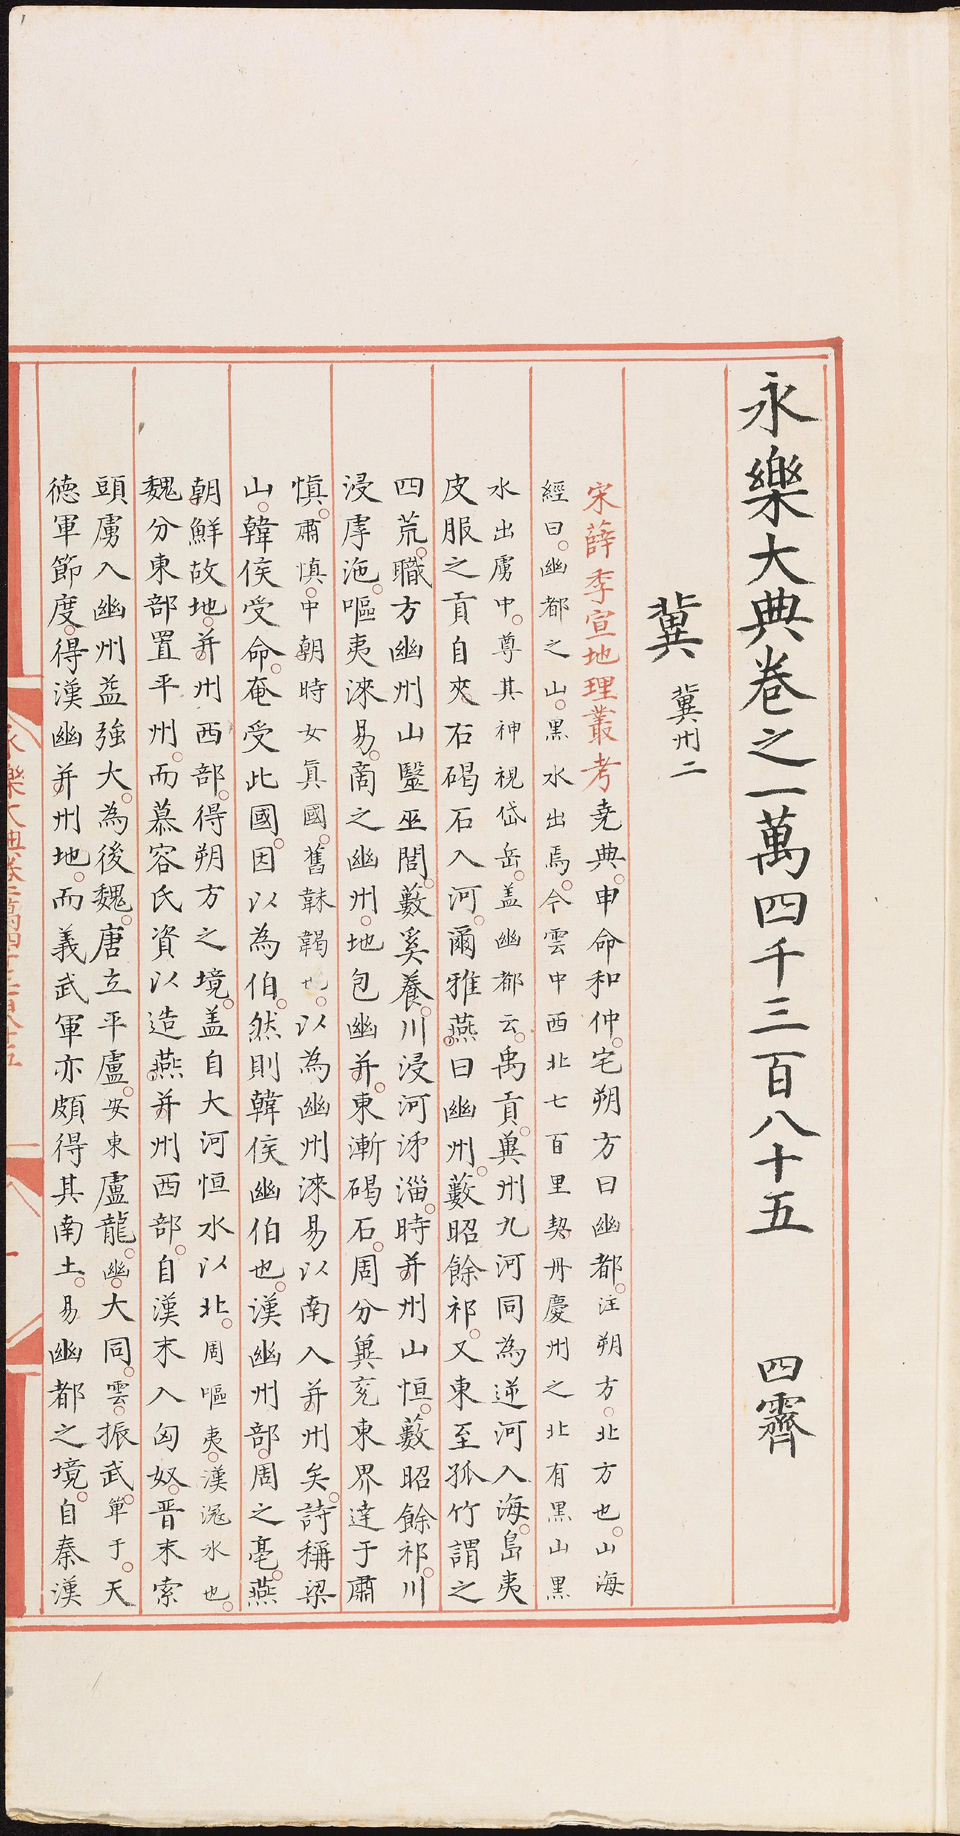 永樂大典卷之一萬四千三百八十五 四霽
冀 冀州二
宋薛季宣地理叢考堯典。申命和仲。宅朔方曰幽都。注朔方。北方也。山海
經曰。幽都之山。黑水出焉。今雲中西北七百里契丹慶州之北有黑山黑
水出虜中。尊其神視岱岳。盖幽都云。禹貢。冀州九河同為逆河入海。島夷
皮服之貢自夾石碣石入河。爾雅燕曰幽州。藪昭餘祁。又東至孤竹謂之
四荒。職方幽州山毉巫閭。藪奚養。川浸河泲淄。時并州山恒。藪昭餘祁。川
浸虖池。嘔夷淶易。啇之幽州。地包幽并。東漸碣石。周分冀兖東界達于肅
慎。肅慎。中朝時女真國。舊靺鞨也。以為幽州淶易以南入并州矣。詩稱梁
山。韓侯受命。奄受此國。因以為伯。然則韓侯幽伯也。漢幽州部。周之亳。燕
朝鮮故地。并州西部。得朔方之境。盖自大河恒水以北。周嘔夷。漢滱水也。
魏分東部置平州。而慕容氏資以造燕。并州西部。自漢末入匈奴。晋末索
頭虜入幽州益強大。為後魏。唐立平盧。安東盧龍。幽。大同。雲。振武。單于。天
德軍節度。得漢幽并州地。而義武軍亦頗得其南土。易幽都之境。自秦漢
永樂大典卷一萬四千三百八十五
一